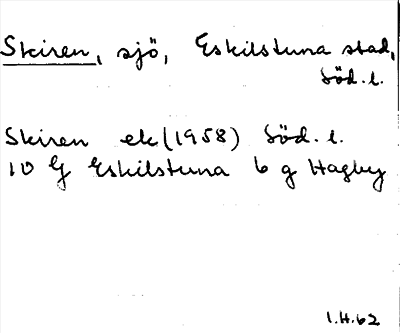 Skiren, sjö, Eskilstuna stad,
Söd. l.
Skiren ek (1958) Söd. l.
10 G Eskilstuna 6 g Hagby
1.H.62